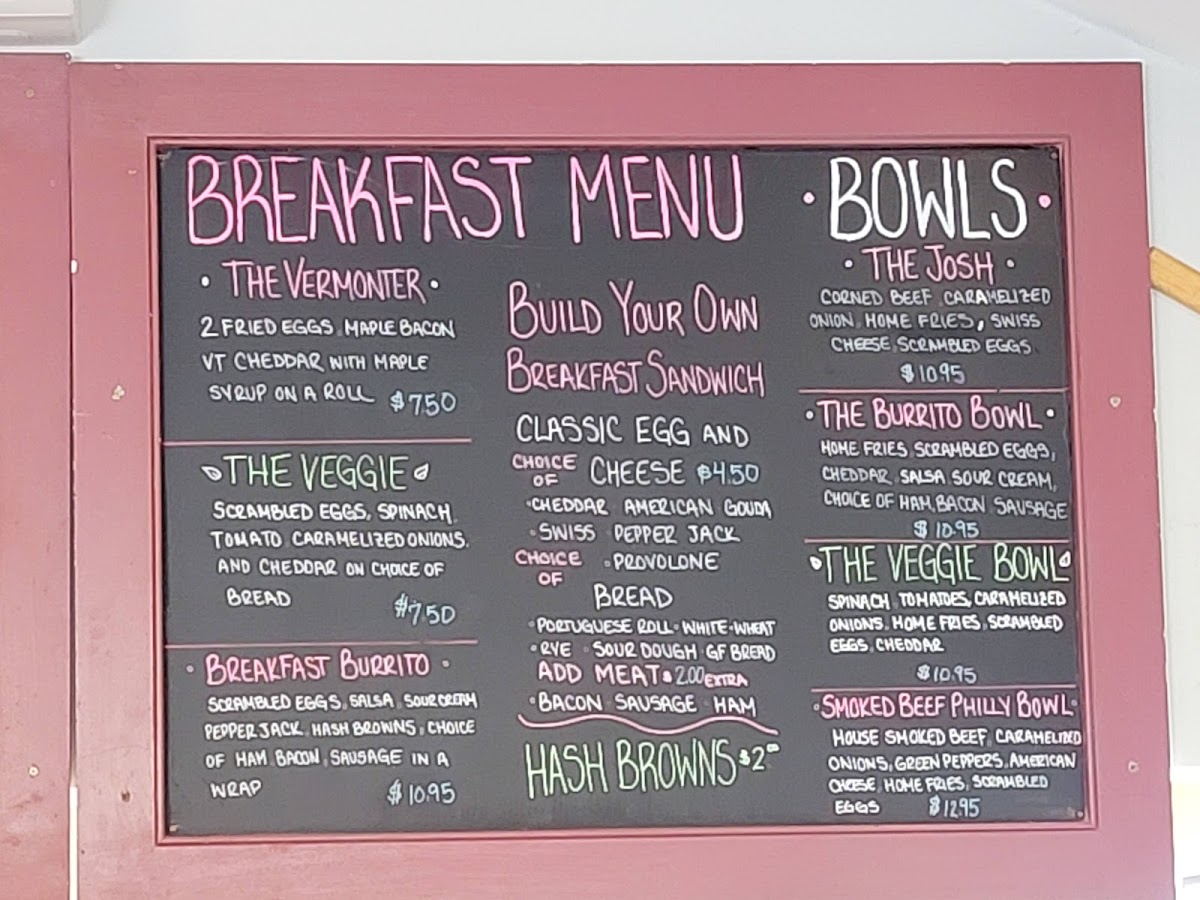 BREAKFAST MENU
· THE VERMONTER ·
2 FRIED EGGS, MAPLE BACON
VT CHEDDAR WITH MAPLE
SYRUP ON A ROLL $7.50
THE VEGGIE
SCRAMBLED EGGS, SPINACH,
TOMATO, CARAMELIZED ONIONS,
AND CHEDDAR ON CHOICE OF
BREAD $7.50
· BREAKFAST BURRITO ·
SCRAMBLED EGGS, SALSA, SOUR CREAM
PEPPER JACK, HASH BROWNS, CHOICE
OF HAM, BACON, SAUSAGE IN A
WRAP $10.95
BUILD YOUR OWN
BREAKFAST SANDWICH
CLASSIC EGG AND
CHOICE OF CHEESE $4.50
·CHEDDAR AMERICAN GOUDA
·SWISS PEPPER JACK
·PROVOLONE
CHOICE OF BREAD
·PORTUGUESE ROLL·WHITE·WHEAT
·RYE SOUR DOUGH GF BREAD
ADD MEAT $2.00 EXTRA
·BACON SAUSAGE HAM
HASH BROWNS $2.00
· BOWLS ·
· THE JOSH ·
CORNED BEEF, CARAMELIZED
ONION, HOME FRIES, SWISS
CHEESE, SCRAMBLED EGGS.
$10.95
· THE BURRITO BOWL ·
HOME FRIES, SCRAMBLED EGGS,
CHEDDAR, SALSA, SOUR CREAM,
CHOICE OF HAM, BACON, SAUSAGE
$10.95
THE VEGGIE BOWL
SPINACH, TOMATOES, CARAMELIZED
ONIONS, HOME FRIES, SCRAMBLED
EGGS, CHEDDAR
$10.95
·SMOKED BEEF PHILLY BOWL·
HOUSE SMOKED BEEF, CARAMELIZED
ONIONS, GREEN PEPPERS, AMERICAN
CHEESE, HOME FRIES, SCRAMBLED
EGGS $12.95